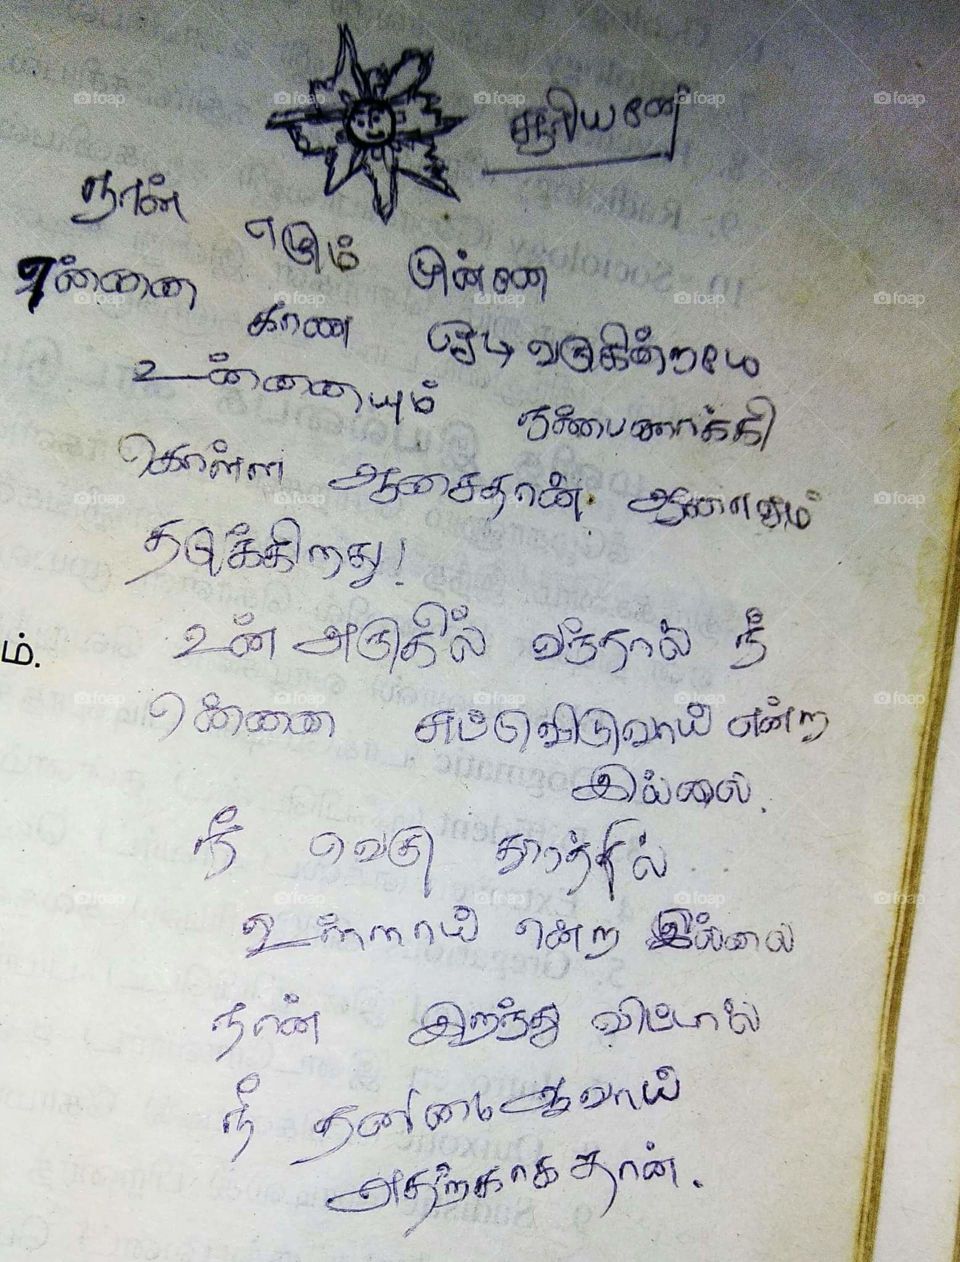 சூரியனே
நான் எழும் முன்னே
என்னை காண ஓடி வருகின்றாயே
உன்னையும் நண்பனாக்கி
கொள்ள ஆசைதான். ஆனாலும்
தடுக்கிறது!
உன் அருகில் வந்தால் நீ
என்னை சுட்டுவிடுவாய் என்ற
இல்லை.
நீ வெகு தூரத்தில்
உள்ளாய் என்ற இல்லை
நான் இறந்து விட்டால்
நீ தனிமை ஆவாய்
அதற்காக தான்.
ம்.